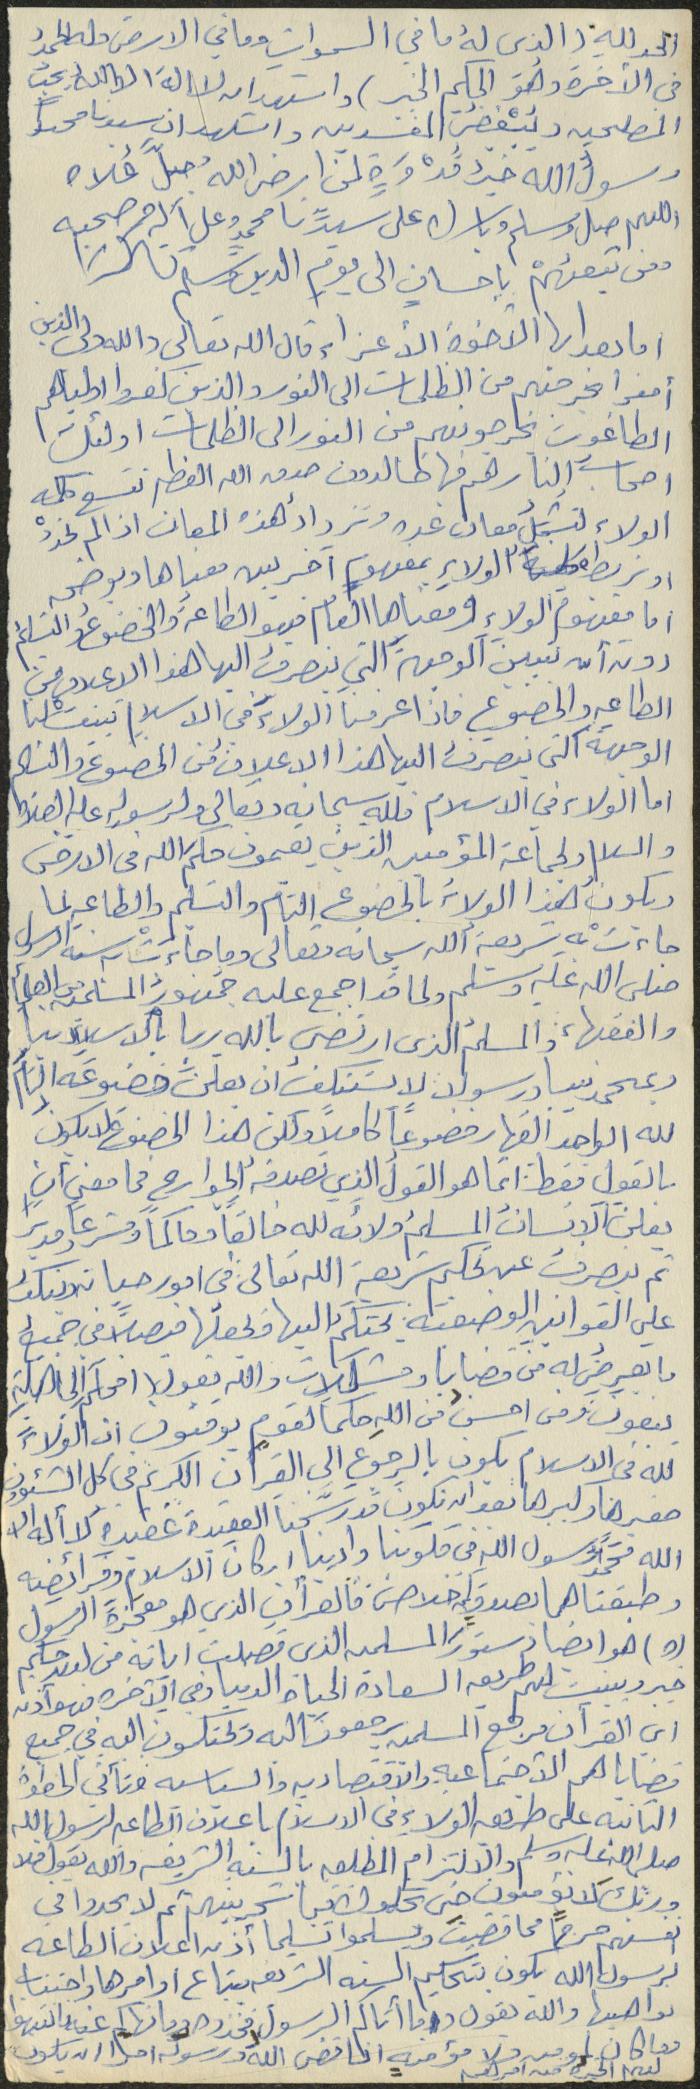 الحمد لله (الذي له ما في السموات وما في الارض وله الحمد
في الآخرة وهو الحكيم الخبير) واشهد ان لا اله الا الله يحب
المصلحين ويبغض المفسدين واشهد ان سيدنا محمداً
رسول الله خير قدوة لمن ارضى الله جل علاه
اللهم صل وسلم وبارك على سيدنا محمد وعلى آله وصحبه
ومن تبعهم بإحسان الى يوم الدين وسلم
اما بعد ايها الاخوة الأعزاء قال الله تعالى والله ولي الذين
آمنوا يخرجهم من الظلمات الى النور والذين كفروا اولياهم
الطاغوت يخرجونهم من النور الى الظلمات اولئك
اصحاب النار هم فيها خالدون صدق الله العظيم تتسع كلمة
الولاء لتشمل معان عده وتزداد هذه المعان اذا لم نحدد
او نربط كلمة الولاء بمفهوم آخر يبين معناها ويوضحه
اما مفهوم الولاء ومعناها العام فهو الطاعة والخضوع والتسليم
دون أن نبين الوجهة التي ينصرف اليها هذا الاعلان من
الطاعه والخضوع فاذا عرفنا الولاء في الاسلام تبينت لنا
الوجهة التي ينصرف اليها هذا الاعلان من الخضوع والتسليم
اما الولاء في الاسلام فلله سبحانه وتعالى ولرسوله عليه الصلاة
والسلام ولجماعة المؤمنين الذين يقيمون حكم الله في الارض
ويكون هذا الولاء بالخضوع التام والتسليم والطاعه لما
جاءت به شريعة الله سبحانه وتعالى وما جاءت به سنة الرسول
صلى الله عليه وسلم ولما قد اجمع عليه جمهور المسلمين من العلماء
والفقهاء والمسلم الذي ارتضى بالله ربا بالاسلام دينا
وبمحمد نبيا ورسولا لا يستنكف أن يعلن خضوعه التام
لله الواحد القهار خضوعاً كاملاً ولكن هذا الخضوع لا يكون
بالقول فقط انما هو القول الذي تصدقه الجوارح فما معنى أن
يعلن الإنسان المسلم ولائه لله خالقاً وحاكماً ومشرعاً ومدبراً
ثم ينصرف عن تحكيم شريعة الله تعالى في امور حياته ويتكئ
على القوانين الوضعية يحتكم اليها ويجعلها فيصلاً في جميع
ما يعرض له من قضايا ومشكلات والله يقول افحكم الجاهلية
يبغون ومن احسن من الله حكما لقوم يوقنون ان الولاء
لله في الاسلام يكون بالرجوع الى القرآن الكريم في كل الشئون
صغيرها وكبيرها بعد ان نكون قد رسخنا العقيدة عقيدة لا اله الا
الله محمد رسول الله في قلوبنا وادينا اركان الاسلام وفرائضه
وطبقناهما بصدق واخلاص فالقرآن الذي هو معجزة الرسول
(ص) هو ايضا دستور المسلمين الذي فصلت اياته من لدن حكيم
خبير وبينت لهم طريق السعادة الحياة الدنيا وفي الآخره فهو أذن
اي القرآن مرجع المسلمين يرجعون اليه ويحتكمون اليه في جميع
قضاياهم الاجتماعيه والاقتصاديه والسياسيه وتأتي الخطوة
الثانيه على طريق الولاء في الاسلام باعلان الطاعه لرسول الله
صلى الله عليه وسلم والالتزام المطلق بالسنه الشريفه والله يقول فلا
وربك لا يؤمنون حتى يحكموك فيما شجر بينهم ثم لا يجدوا في
انفسهم حرجاً مما قضيت ويسلموا تسليما أذن اعلان الطاعه
لرسول الله يكون بتحكيم السنه الشريفه بتباع اوامرها واجتناب
نواهيها والله يقول وما أتاكم الرسول فخذوه وما نهاكم عنه فانتهوا
وما كان لمؤمن ولا مؤمنة اذا قضى الله ورسوله امرا ان يكون
لهم الخيرة من امرهم